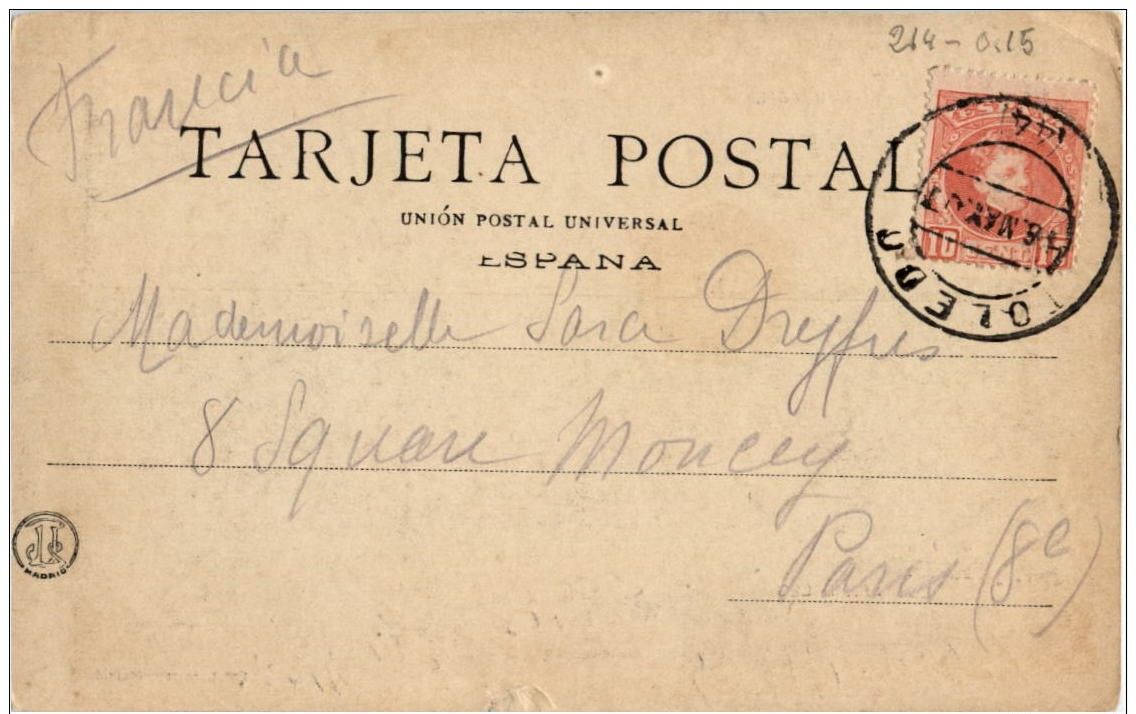 214 - 0.15
Francia
TARJETA POSTAL
UNIÓN POSTAL UNIVERSAL
ESPAÑA
TOLEDO
MAY
10
Mademoiselle Sara Dreyfus
8 Square Moncey
Paris (8e)
MADRID